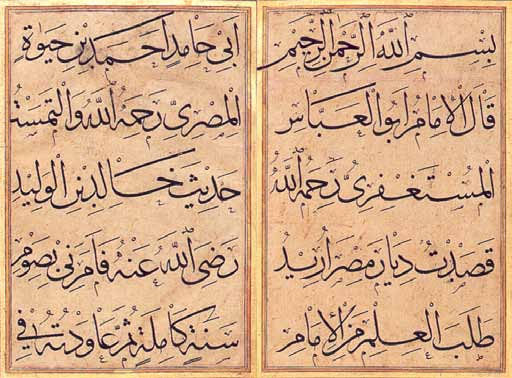 بسم الله الرحمن الرحيم
قال الإمام أبو العباس
المستغفرى رحمه الله
قصدت ديار مصر اريد
طلب العلم من الإمام
ابى حامد احمد بن حيوة
المصرى رحمه الله والتمست
حديث خالد بن الوليد
رضى الله عنه فامرنى بصوم
سنة كاملة ثم عاودته فى